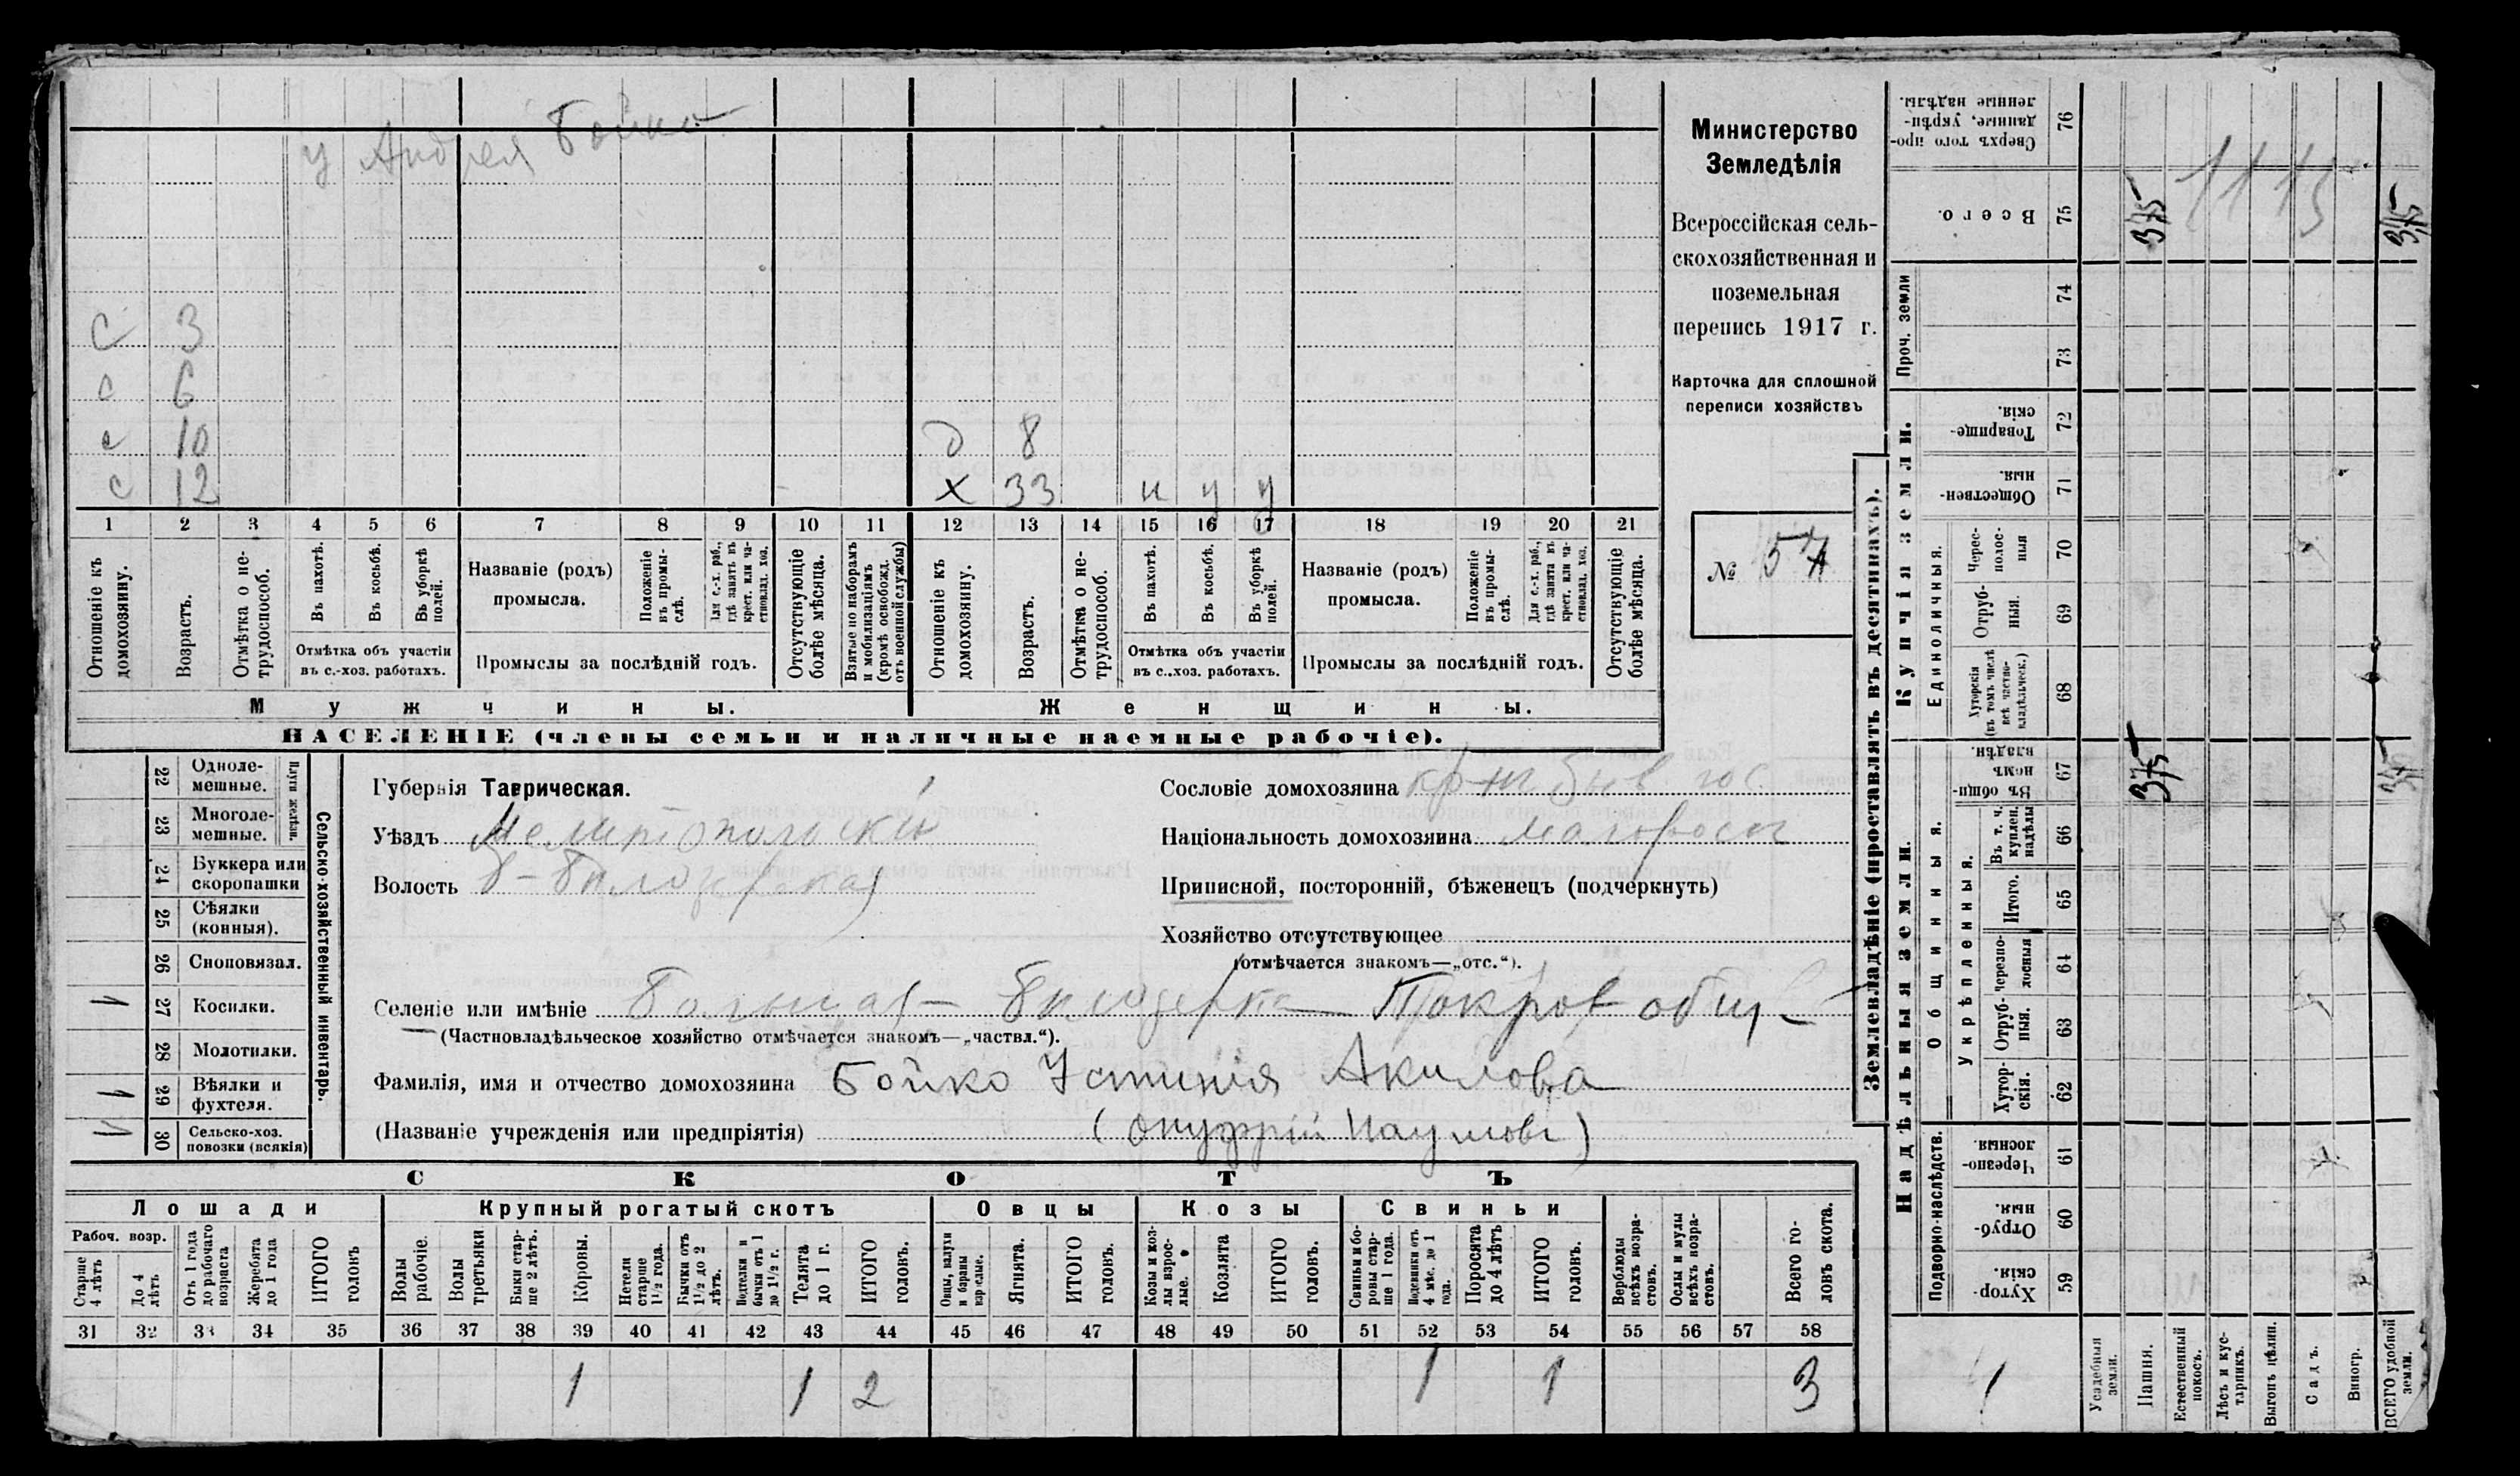 у Андрея Бойко
С 3
с 6
с 10 д 8
с 12 х 33 н у у
1 2 3 4 5 6 7 8 9 10 11 12 13 14 15 16 17 18 19 20 21
Отношеніе къ домохозяину.
Возрастъ.
Отмѣтка о не-трудоспособ.
Въ пахотѣ.
Въ косьбѣ.
Въ уборкѣ полей.
Отмѣтка объ участіи
въ с.-хоз. работахъ.
Названіе (родъ)
промысла.
Положеніе въ промы-слѣ.
Для с.-х. раб., гдѣ занятъ въ крест. или ча-стновлад. хоз.
Промыслы за послѣдній годъ.
Отсутствующіе болѣе мѣсяца.
Взятые по наборамъ и мобилизаціямъ (кромѣ освобожд. отъ военной службы)
Отношеніе къ домохозяину.
Возрастъ.
Отмѣтка о не-трудоспособ.
Въ пахотѣ.
Въ косьбѣ.
Въ уборкѣ полей.
Отмѣтка объ участіи
въ с.-хоз. работахъ.
Названіе (родъ)
промысла.
Положеніе въ промы-слѣ.
Для с.-х. раб., гдѣ занята въ крест. или ча-стновлад. хоз.
Промыслы за послѣдній годъ.
Отсутствующіе болѣе мѣсяца.
Мужчины. Женщины.
НАСЕЛЕНІЕ (члены семьи и наличные наемные рабочіе).
Министерство
Земледѣлія
Всероссійская сель-
скохозяйственная и
поземельная
перепись 1917 г.
Карточка для сплошной
переписи хозяйствъ
№ 54
Сельско-хозяйственный инвентарь.
Плуги желѣзн.
22 Одноле-мешные.
23 Многоле-мешные.
24 Буккера или скоропашки
25 Сѣялки (конныя).
26 Сноповязал.
1 27 Косилки.
28 Молотилки.
1 29 Вѣялки и фухтеля.
1 30 Сельско-хоз. повозки (всякія)
Губернія Таврическая.
Уѣздъ Мелитопольскій
Волость Б-Билозерская
Сословіе домохозяина кр-нъ быв гос
Національность домохозяина малоросъ
Приписной, посторонній, бѣженецъ (подчеркнуть)
Хозяйство отсутствующее
(отмѣчается знакомъ—„отс.“).
Селеніе или имѣніе Большая Билозерка Покров общ
(Частновладѣльческое хозяйство отмѣчается знакомъ—„частвл.“).
Фамилія, имя и отчество домохозяина Бойко Устинія Акилова
(Названіе учрежденія или предпріятія) (Онуфрій Наумовъ)
СКОТЪ
Лошади Крупный рогатый скотъ Овцы Козы Свиньи
Рабоч. возр.
Старше 4 лѣтъ
До 4 лѣтъ
Отъ 1 года до рабочаго возраста
Жеребята до 1 года
ИТОГО головъ
Волы рабочіе.
Волы третьяки
Быки стар-ше 2 лѣтъ.
Коровы.
Нетели старше 1½ года.
Бычки отъ 1½ до 2 лѣтъ.
Подтелки и бычки отъ 1 до 1½ г.
Телята до 1 г.
ИТОГО головъ.
Овцы, валухи и бараны взрослые.
Ягнята.
ИТОГО головъ.
Козы и коз-лы взрос-лые.
Козлята
ИТОГО головъ.
Свиньи и бо-ровы стар-ше 1 года.
Подсвинки отъ 4 мѣс. до 1 года.
Поросята до 4 лѣтъ
ИТОГО головъ.
Верблюды всѣхъ возра-стовъ.
Ослы и мулы всѣхъ возра-стовъ.
Всего го-ловъ скота.
31 32 33 34 35 36 37 38 39 40 41 42 43 44 45 46 47 48 49 50 51 52 53 54 55 56 57 58
1 1 2 1 1 3
Землевладѣніе (проставлять въ десятинахъ).
Надѣльныя земли. Купчія земли. Проч. земли
Подворно-наслѣдств. Общинныя. Укрѣпленныя. Единоличныя.
59 Хутор-скія.
60 Отруб-ныя.
61 Черезпо-лосныя
62 Хутор-скія.
63 Отруб-ныя.
64 Черезпо-лосныя
65 Итого.
66 Въ т. ч. куплен. надѣлы
67 Въ общи-номъ владѣн.
68 Хуторскія (въ томъ числѣ всѣ частно-владѣльческ.)
69 Отруб-ныя.
70 Черес-полос-ныя
71 Обществен-ныя.
72 Товарище-скія.
73
74
75 Всего.
76 Сверхъ того про-данные, укрѣп-ленные надѣлы.
Усадебныя земли.
Пашня.
Естественный покосъ.
Лѣсъ и кус-тарникъ.
Выгонъ цѣлин.
Садъ.
Виногр.
ВСЕГО удобной земли.
375 375
375
1115
1